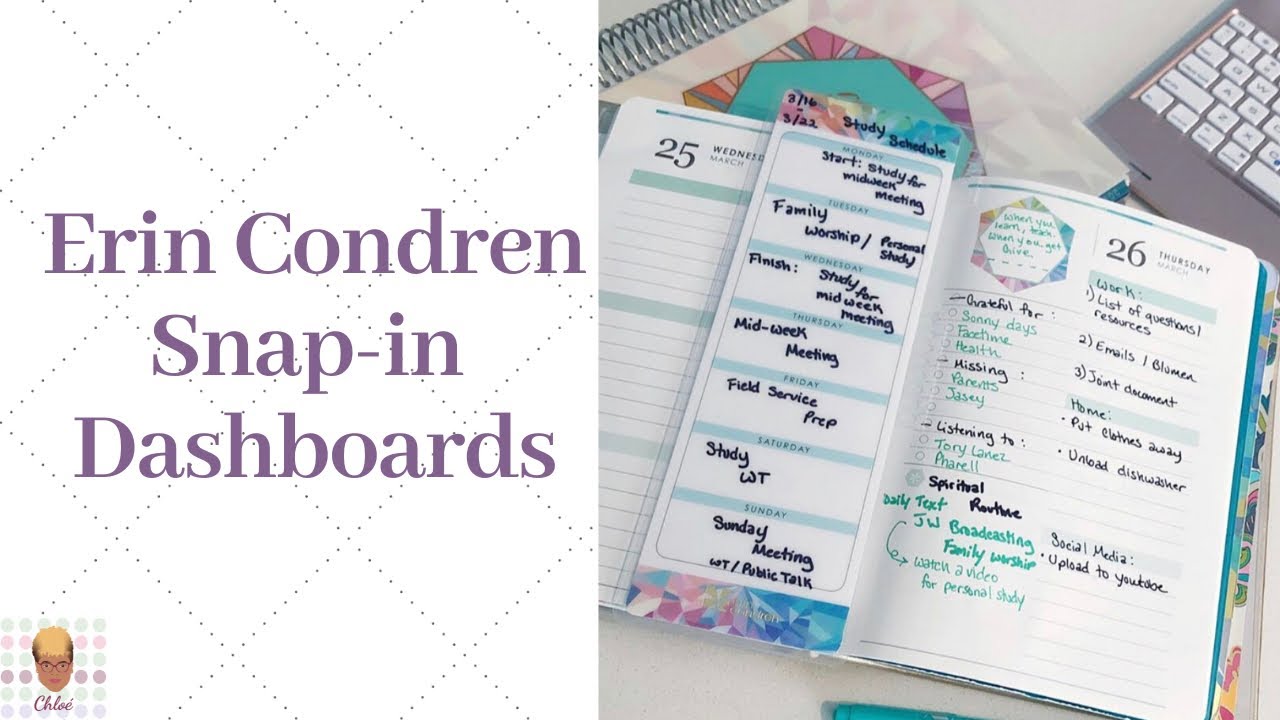 Erin Condren
Snap-in
Dashboards
Chloé
25 WEDNESDAY
MARCH
3/16
-
3/22
Study
Schedule
MONDAY
Start: Study for
midweek
meeting
TUESDAY
Family
Worship/ Personal
Study
WEDNESDAY
Finish: Study for
mid week
meeting
THURSDAY
Mid-week
Meeting
FRIDAY
Field Service
Prep
SATURDAY
Study
WT
SUNDAY
Sunday
Meeting
WT/Public Talk
When you
learn, teach.
When you get
Give.
26 THURSDAY
MARCH
- Grateful for :
Sonny days
Facetime
Health
- Missing :
Parents
Jasey
- Listening to :
Tory Lanez
Pharell
Spiritual
Routine
Daily Text
JW Broadcasting
Family worship
watch a video
for personal study
Work:
1) List of questions/
resources
2) Emails / Blumen
3) Joint document
Home:
• Put clothes away
• Unload dishwasher
Social Media:
• Upload to youtube